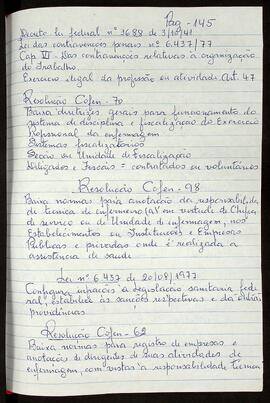 Pag - 145
Decreto Lei federal nº 3688 de 3/10/41
Lei das contravenções penais nº 6.437/77
Cap VI - Das contravenções relativas à organização
do Trabalho.
Exercício legal da profissão ou atividade Art. 47
Resolução Cofen - 70
Baixa diretrizes gerais para funcionamento do
sistema de disciplina e fiscalização do Exercício
Profissional da enfermagem
Sistemas fiscalizatórios
Seção ou Unidade de Fiscalização
Delegados e Fiscais = contratados ou voluntários
Resolução Cofen - 98
Baixa normas para anotação da responsabilida-
de técnica de enfermeiro(a) em virtude de Chefia
de serviço ou de Unidade de enfermagem, nos
Estabelecimentos ou Instituições e Empresas
Públicas e privadas onde é realizada a
assistência de saúde
Lei nº 6.437 de 20/08/1977
Configura infrações à legislação sanitária fede
ral, estabelece as sanções respectivas e dá outras
providências.
Resolução Cofen - 62
Baixa normas para registro de empresas e
anotação de dirigentes de suas atividades de
enfermagem, com vistas à responsabilidade técnica